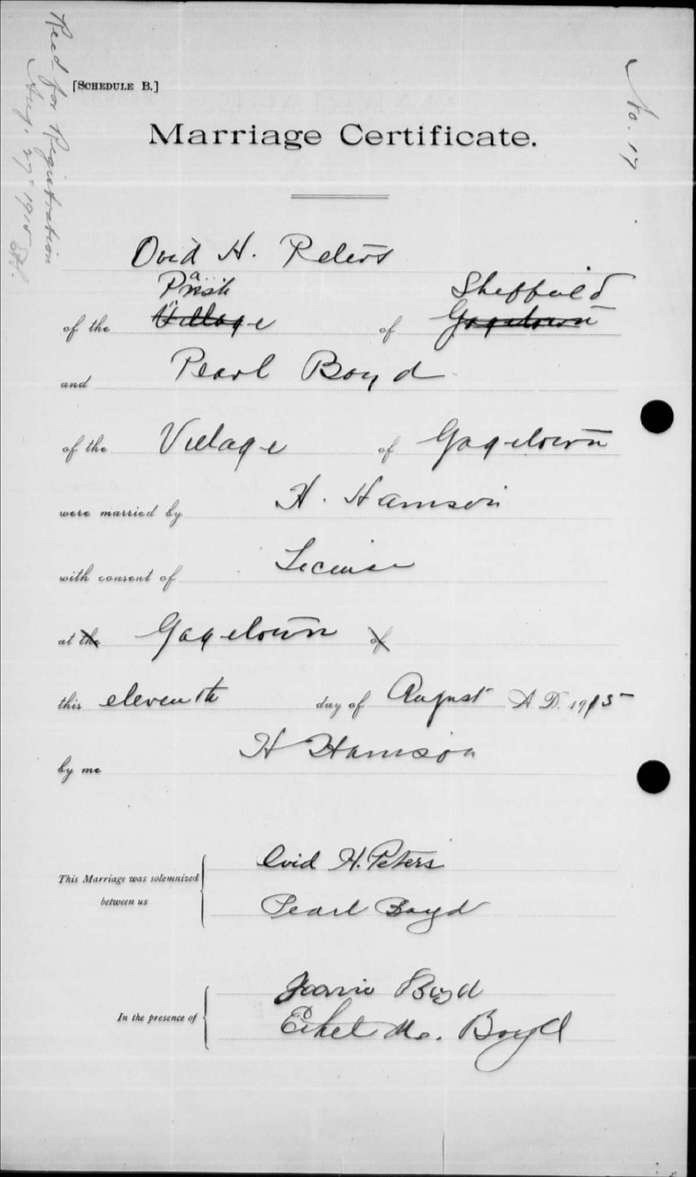 Recd for Registration
Aug. 27 1915
[SCHEDULE B.]
No. 17
Marriage Certificate.
Ovid H. Peters
Parish Sheffield
of the Village of Gagetown
and Pearl Boyd
of the Village of Gagetown
were married by H. Harrison
with consent of License
at the Gagetown of
this eleventh day of August A.D. 1915
by me H Harrison
This Marriage was solemnized
between us
Ovid H. Peters
Pearl Boyd
In the presence of
Jennie Boyd
Ethel M. Boyd